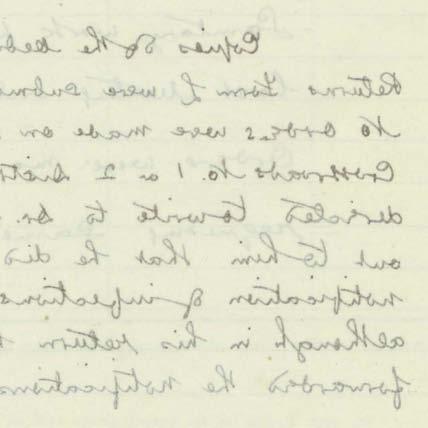 Copies of the
Returns Form I were subm
No orders were made on
Crossroads No. 1 or 2 Dist
decided to write to Dr.
out to him that he did
notification of infections
although in his return
forwarded the notifications